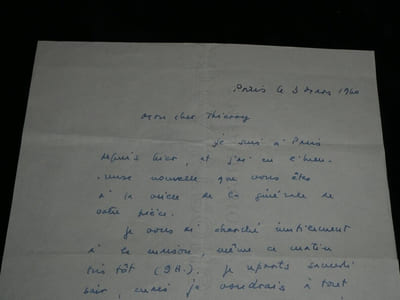 Paris le 3 Mars 1960
Mon cher Thierry
je suis à Paris
depuis hier, et j'ai eu l'heu-
reuse nouvelle que vous êtes
à la veille de la générale de
votre pièce.
Je vous ai cherché inutilement
à la maison, même ce matin
très tôt (9h.). Je reparts samedi
soir, mais je voudrais à tout